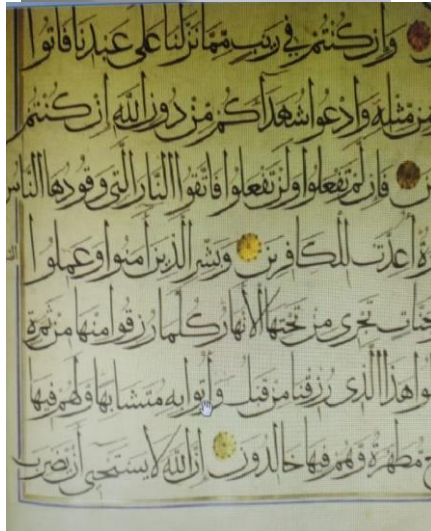 وَإِن كُنتُمْ فِي رَيْبٍ مِمَّا نَزَّلْنَا عَلَى عَبْدِنَا فَاتُوا
مِنْ مِثْلِهِ وَادْعُوا شُهَدَاكُمْ مِنْ دُونِ اللهِ إِنْ كُنتُمْ
فَإِن لَمْ تَفْعَلُوا وَلَنْ تَفْعَلُوا فَاتَّقُوا النَّارَ الَّتِي وَقُودُهَا النَّاسُ
أُعِدَّتْ لِلْكَافِرِينَ وَبَشِّرِ الَّذِينَ آمَنُوا وَعَمِلُوا
جَنَّاتٍ تَجْرِي مِنْ تَحْتِهَا الْأَنْهَارُ كُلَّمَا رُزِقُوا مِنْهَا مِنْ ثَمَرَةٍ
هَذَا الَّذِي رُزِقْنَا مِنْ قَبْلُ وَأُتُوا بِهِ مُتَشَابِهًا وَلَهُمْ فِيهَا
مُطَهَّرَةٌ وَهُمْ فِيهَا خَالِدُونَ إِنَّ اللهَ لَا يَسْتَحْيِي أَنْ يَضْرِبَ